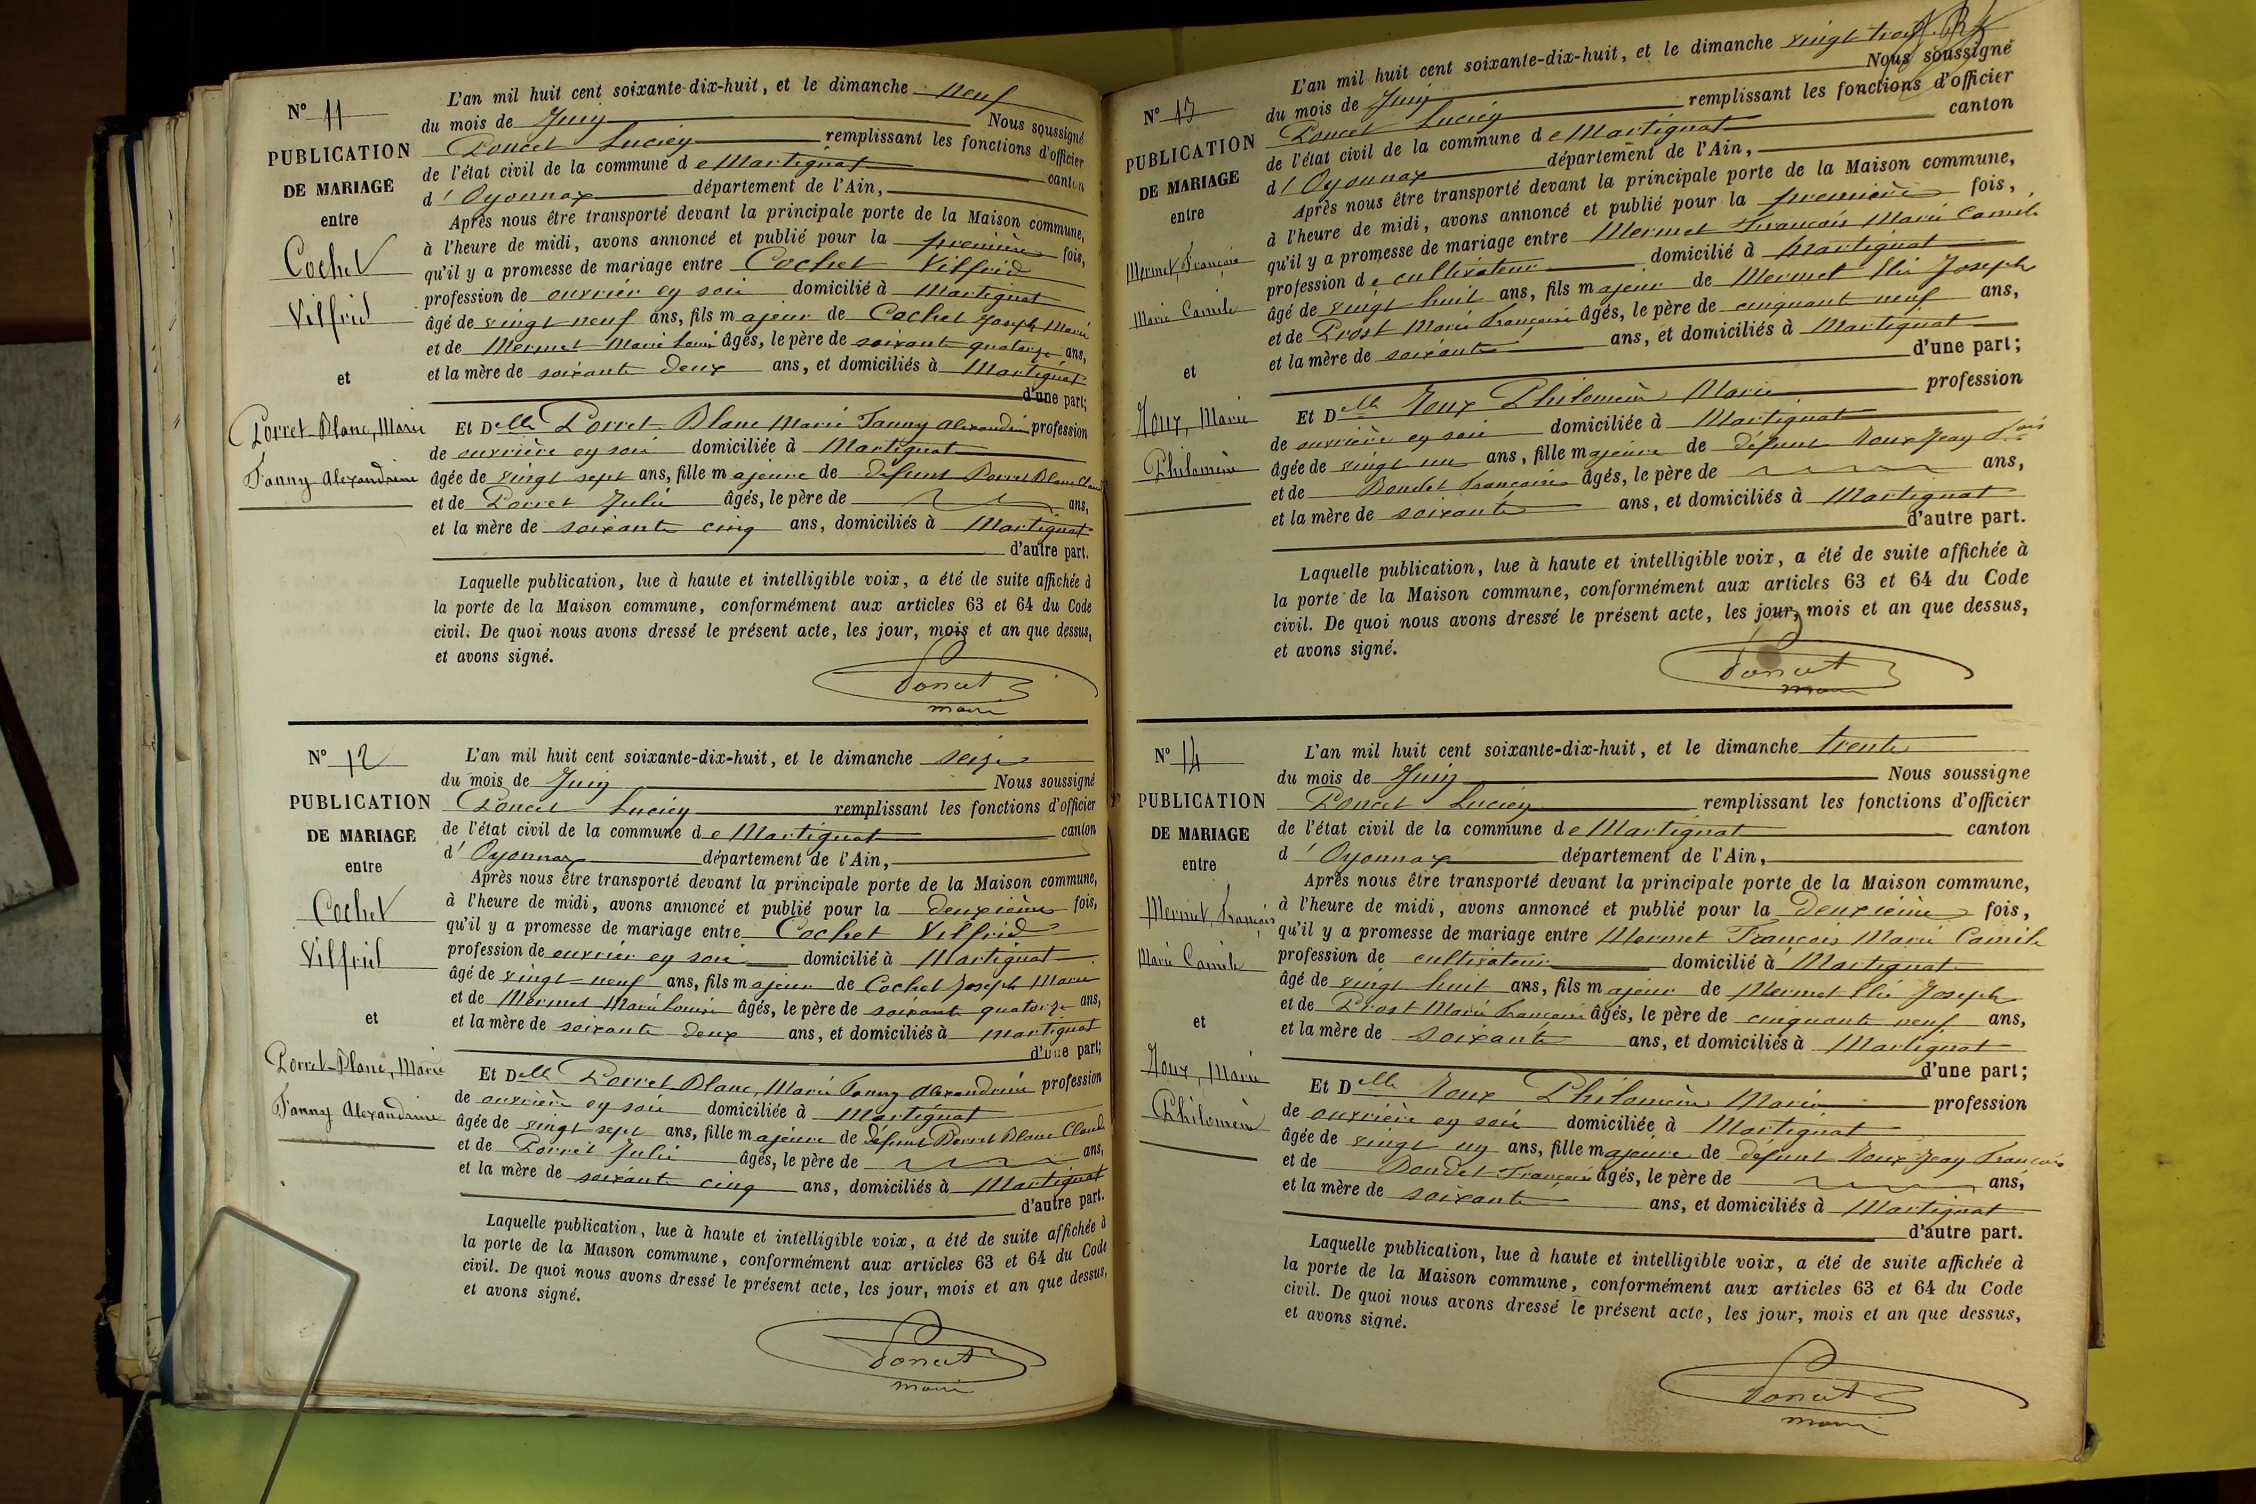 N° 11
PUBLICATION
DE MARIAGE
entre
Cochet
Vilfrid
et
Porret-Blanc, Marie
Fanny Alexandrine
L'an mil huit cent soixante-dix-huit, et le dimanche neuf
du mois de Juin Nous soussigné
Poncet Lucien remplissant les fonctions d'officier
de l'état civil de la commune de Martignat canton
d'Oyonnax département de l'Ain,
Après nous être transporté devant la principale porte de la Maison commune,
à l'heure de midi, avons annoncé et publié pour la première fois,
qu'il y a promesse de mariage entre Cochet Vilfrid
profession de ouvrier en soie domicilié à Martignat
âgé de vingt neuf ans, fils majeur de Cochet Joseph Marie
et de Mermet Marie Louise âgés, le père de soixante quatorze ans,
et la mère de soixante deux ans, et domiciliés à Martignat
d'une part;
Et Delle Porret Blanc Marie Fanny Alexandrine profession
de ouvrière en soie domiciliée à Martignat
âgée de vingt sept ans, fille majeure de défunt Porret Blanc Claude
et de Porret Julie âgés, le père de ans,
et la mère de soixante cinq ans, domiciliés à Martignat
d'autre part.
Laquelle publication, lue à haute et intelligible voix, a été de suite affichée à
la porte de la Maison commune, conformément aux articles 63 et 64 du Code
civil. De quoi nous avons dressé le présent acte, les jour, mois et an que dessus,
et avons signé.
Poncet
maire
N° 12
PUBLICATION
DE MARIAGE
entre
Cochet
Vilfrid
et
Porret-Blanc, Marie
Fanny Alexandrine
L'an mil huit cent soixante-dix-huit, et le dimanche seize
du mois de Juin Nous soussigné
Poncet Lucien remplissant les fonctions d'officier
de l'état civil de la commune de Martignat canton
d'Oyonnax département de l'Ain,
Après nous être transporté devant la principale porte de la Maison commune,
à l'heure de midi, avons annoncé et publié pour la deuxième fois,
qu'il y a promesse de mariage entre Cochet Vilfrid
profession de ouvrier en soie domicilié à Martignat
âgé de vingt neuf ans, fils majeur de Cochet Joseph Marie
et de Mermet Marie Louise âgés, le père de soixante quatorze ans,
et la mère de soixante deux ans, et domiciliés à Martignat
d'une part;
Et Delle Porret Blanc, Marie Fanny Alexandrine profession
de ouvrière en soie domiciliée à Martignat
âgée de vingt sept ans, fille majeure de défunt Porret Blanc Claude
et de Porret Julie âgés, le père de ans,
et la mère de soixante cinq ans, domiciliés à Martignat
d'autre part.
Laquelle publication, lue à haute et intelligible voix, a été de suite affichée à
la porte de la Maison commune, conformément aux articles 63 et 64 du Code
civil. De quoi nous avons dressé le présent acte, les jour, mois et an que dessus,
et avons signé.
Poncet
maire
N° 13
PUBLICATION
DE MARIAGE
entre
Mermet, François
Marie Camile
et
Roux, Marie
Philomène
L'an mil huit cent soixante-dix-huit, et le dimanche vingt trois
du mois de Juin Nous soussigné
Poncet Lucien remplissant les fonctions d'officier
de l'état civil de la commune de Martignat canton
d'Oyonnax département de l'Ain,
Après nous être transporté devant la principale porte de la Maison commune,
à l'heure de midi, avons annoncé et publié pour la première fois,
qu'il y a promesse de mariage entre Mermet François Marie Camile
profession de cultivateur domicilié à Martignat
âgé de vingt huit ans, fils majeur de Mermet Elie Joseph
et de Prost Marie Françoise âgés, le père de cinquante neuf ans,
et la mère de soixante ans, et domiciliés à Martignat
d'une part;
Et Delle Roux Philomène Marie profession
de ouvrière en soie domiciliée à Martignat
âgée de vingt un ans, fille majeure de défunt Roux Jean Fois
et de Bondet Françoise âgés, le père de ans,
et la mère de soixante ans, et domiciliés à Martignat
d'autre part.
Laquelle publication, lue à haute et intelligible voix, a été de suite affichée à
la porte de la Maison commune, conformément aux articles 63 et 64 du Code
civil. De quoi nous avons dressé le présent acte, les jour, mois et an que dessus,
et avons signé.
Poncet
maire
N° 14
PUBLICATION
DE MARIAGE
entre
Mermet, François
Marie Camile
et
Roux, Marie
Philomène
L'an mil huit cent soixante-dix-huit, et le dimanche trente
du mois de Juin Nous soussigné
Poncet Lucien remplissant les fonctions d'officier
de l'état civil de la commune de Martignat canton
d'Oyonnax département de l'Ain,
Après nous être transporté devant la principale porte de la Maison commune,
à l'heure de midi, avons annoncé et publié pour la deuxième fois,
qu'il y a promesse de mariage entre Mermet François Marie Camile
profession de cultivateur domicilié à Martignat
âgé de vingt huit ans, fils majeur de Mermet Elie Joseph
et de Prost Marie Françoise âgés, le père de cinquante neuf ans,
et la mère de soixante ans, et domiciliés à Martignat
d'une part;
Et Delle Roux Philomène Marie profession
de ouvrière en soie domiciliée à Martignat
âgée de vingt un ans, fille majeure de défunt Roux Jean François
et de Bondet Françoise âgés, le père de ans,
et la mère de soixante ans, et domiciliés à Martignat
d'autre part.
Laquelle publication, lue à haute et intelligible voix, a été de suite affichée à
la porte de la Maison commune, conformément aux articles 63 et 64 du Code
civil. De quoi nous avons dressé le présent acte, les jour, mois et an que dessus,
et avons signé.
Poncet
maire